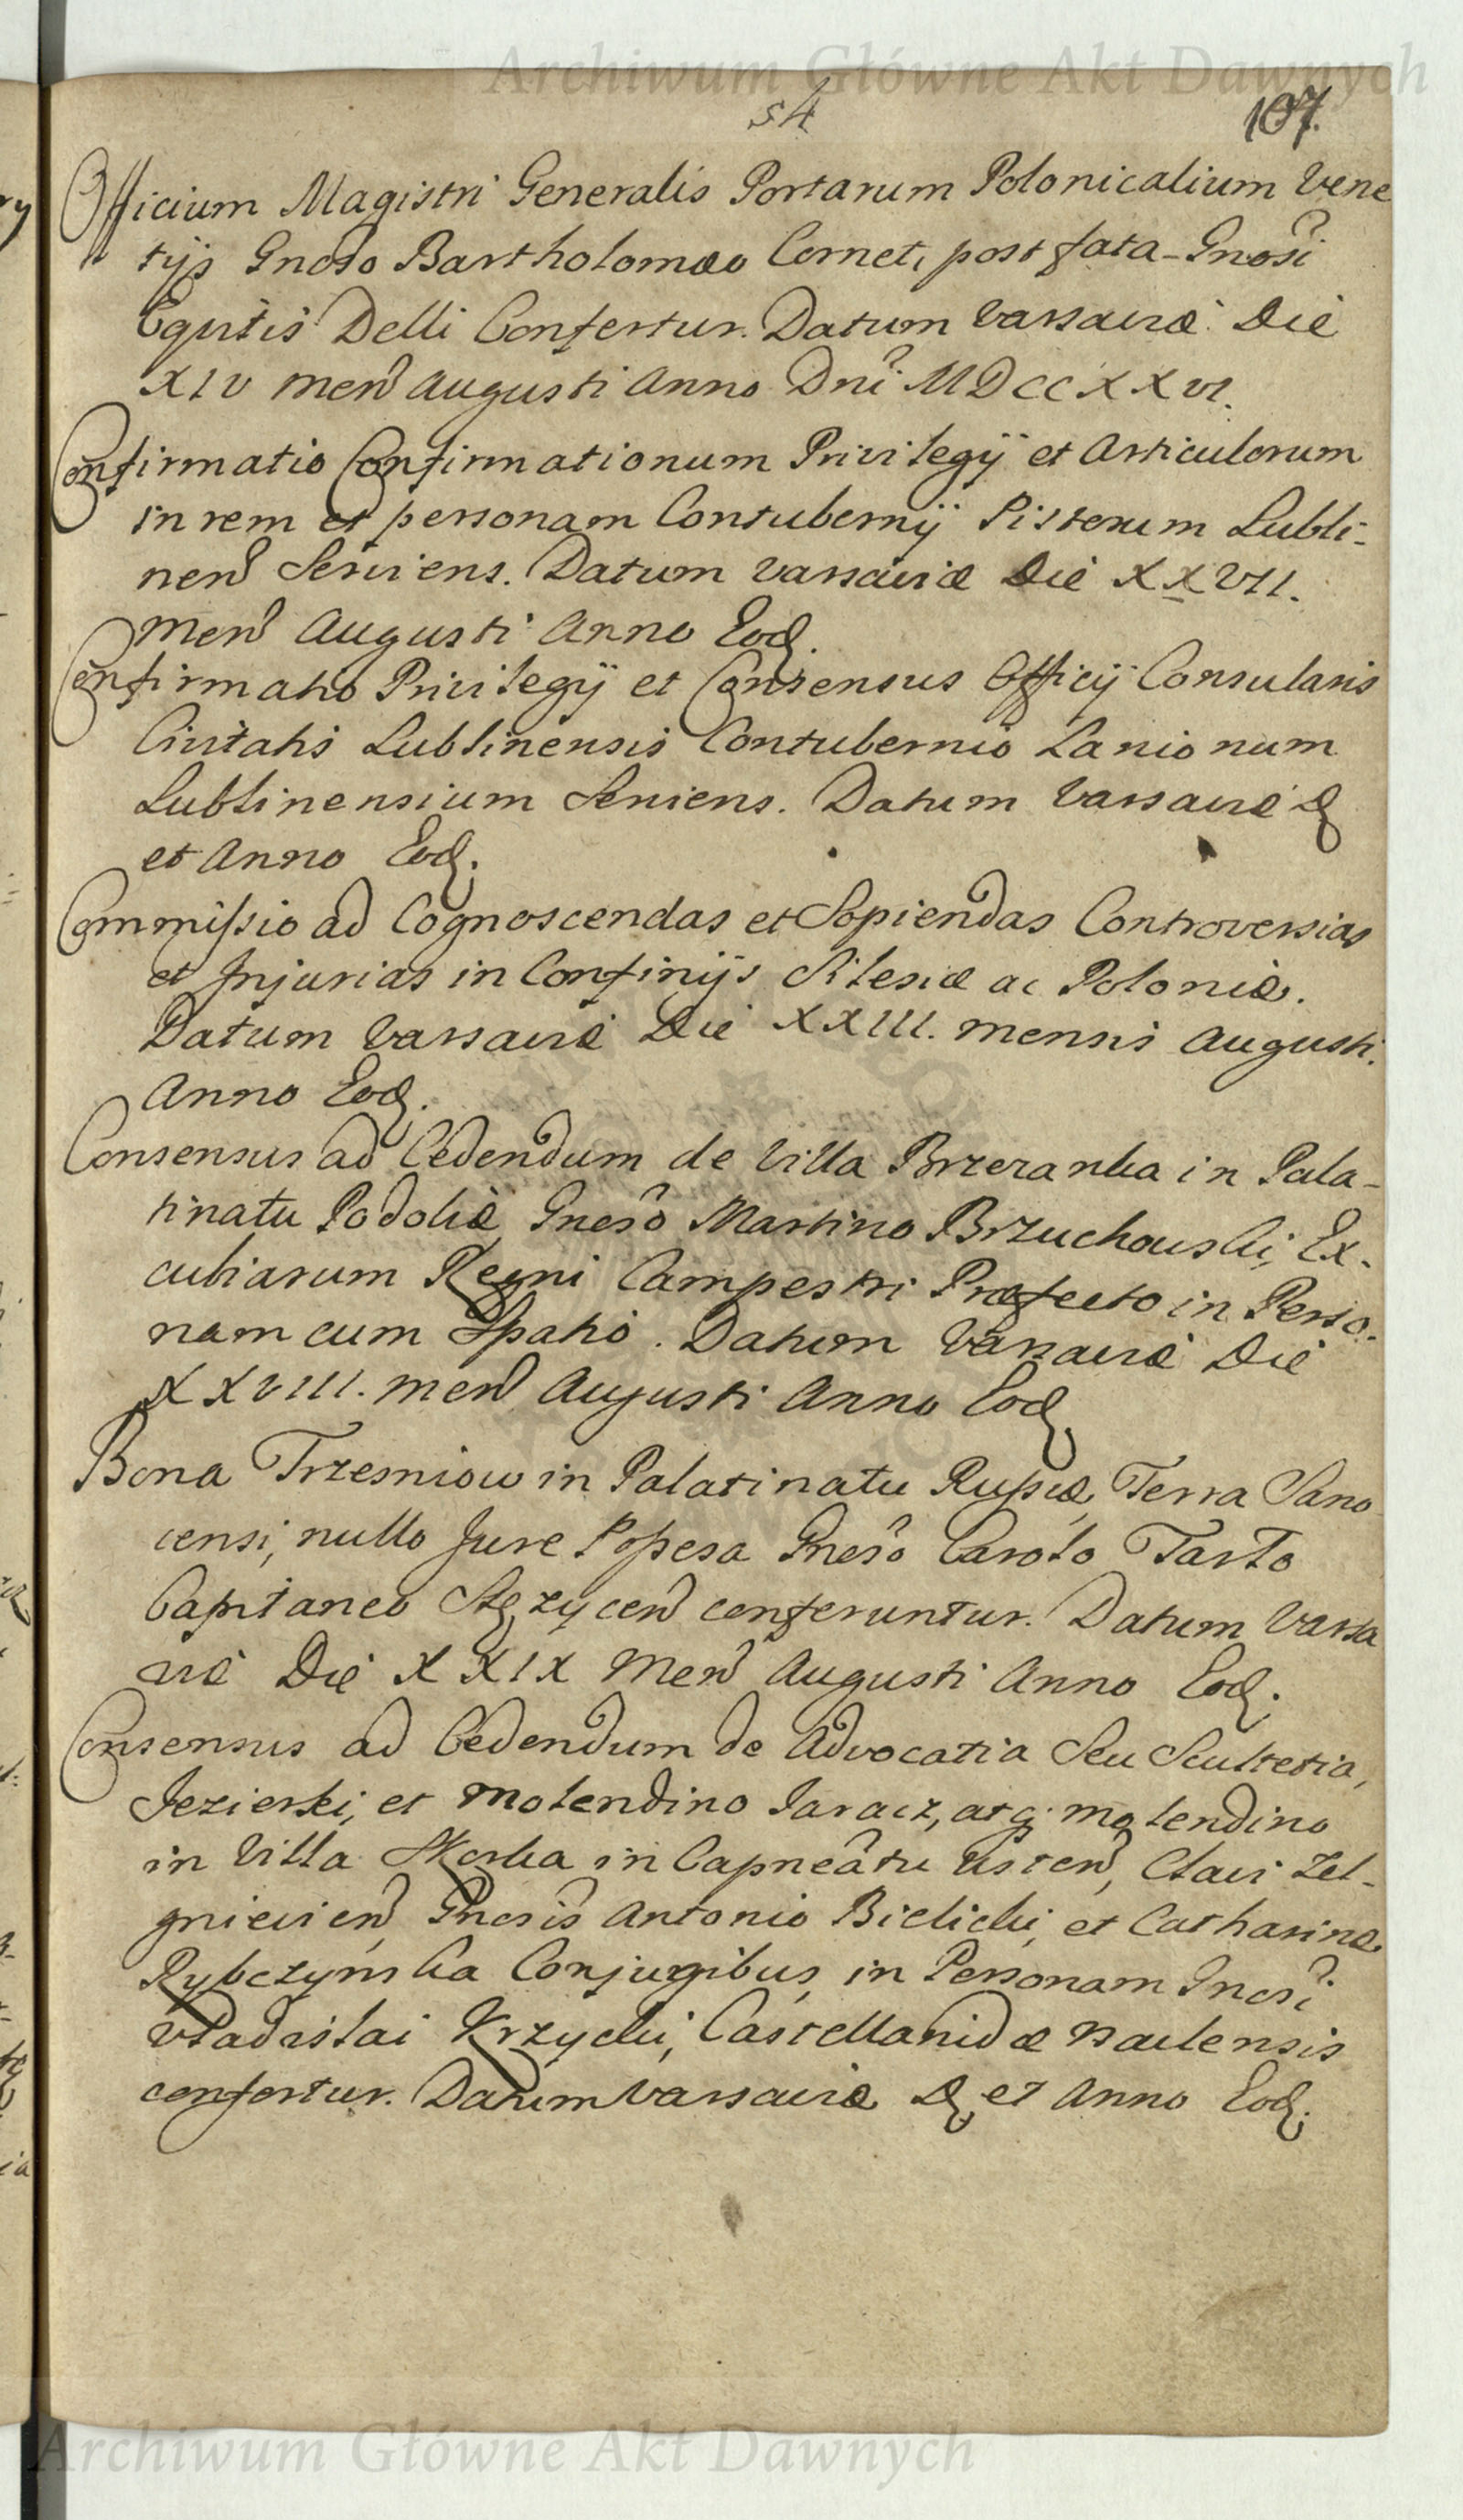 Archiwum Główne Akt Dawnych
54
107.
Officium Magistri Generalis Portarum Polonicalium Vene
tijs Gnoso Bartholomæo Cornet, post fata Gnosi
Equitis Delli Confertur. Datum Varsaviæ Die
XIV Mens Augusti Anno Dni MDCCXXVI.
Confirmatio Confirmationum Privilegij et Articulorum
in rem et personam Contubernij Pistorum Lubli-
nens Serviens. Datum Varsaviæ Die XXVII.
Mens Augusti Anno Eod.
Confirmatio Privilegij et Consensus Officij Consularis
Civitatis Lublinensis Contubernio Lanionum
Lublinensium Serviens. Datum Varsaviæ D
et Anno Eod.
Commissio ad Cognoscendas et Sopiendas Controversias
et Injurias in Confinijs Silesiæ ac Poloniæ.
Datum Varsaviæ Die XXIII. mensis Augusti.
Anno Eod.
Consensus ad Cedendum de Villa Brzezanka in Pala-
tinatu Podoliæ, Gneso Martino Brzuchowski, Ex-
cubiarum Regni Campestri Præfecto in Perso-
nam cum Spatio. Datum Varsaviæ Die
XXVIII. Mens Augusti Anno Eod
Bona Trzesniow in Palatinatu Russiæ, Terra Sano
censi, nullo Jure Possesa Gneso Carolo Tarło
Capitaneo Stęzycens conferuntur. Datum Varsa
viæ Die XXIX Mens Augusti Anno Eod.
Consensus ad Cedendum de Advocatia Seu Scultetia,
Jezierski, et Molendino Jaracz, atq; molendino
in Villa Skorka in Capneatu Ustens, Clavi Zel-
gnieviens, Gnesis Antonio Bielicki, et Catharinæ
Rybczynska Conjugibus, in Personam Gnesi
Vladislai Krzycki, Castellanidæ Naklensis
confertur. Datum Varsaviæ D et Anno Eod.
Archiwum Główne Akt Dawnych